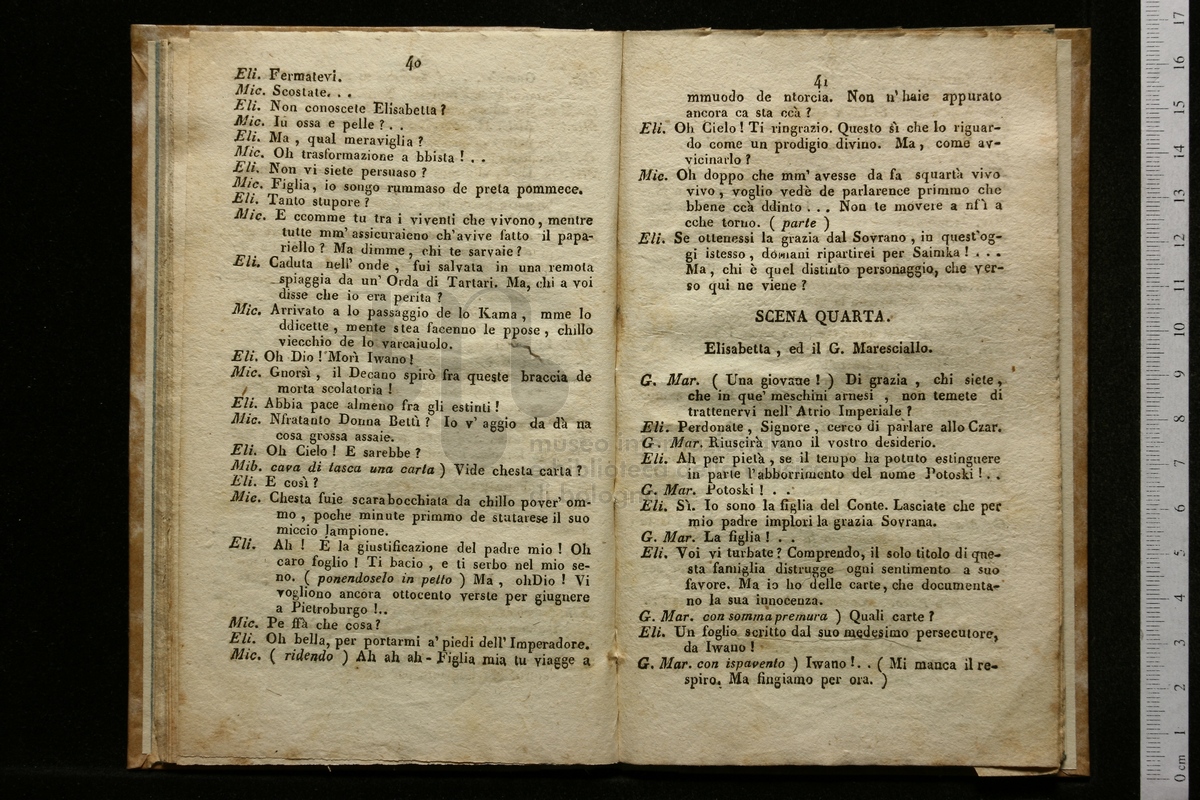 40
Eli. Fermatevi.
Mic. Scostate. . .
Eli. Non conoscete Elisabetta ?
Mic. Iù ossa e pelle ? . .
Eli. Ma , qual meraviglia ?
Mic. Oh trasformazione a bbista ! . .
Eli. Non vi siete persuaso ?
Mic. Figlia, io songo rummaso de preta pommece.
Eli. Tanto stupore ?
Mic. E ccomme tu tra i viventi che vivono, mentre
tutte mm' assicuraieno ch'avive fatto il papa-
riello ? Ma dimme, chi te sarvaie ?
Eli. Caduta nell' onde , fui salvata in una remota
spiaggia da un' Orda di Tartari. Ma, chi a voi
disse che io era perita ?
Mic. Arrivato a lo passaggio de lo Kama , mme lo
ddicette , mente stea facenno le ppose, chillo
viecchio de lo varcaiuolo.
Eli. Oh Dio ! Morì Iwano !
Mic. Gnorsì , il Decano spirò fra queste braccia de
morta scolatoria !
Eli. Abbia pace almeno fra gli estinti !
Mic. Nfratanto Donna Bettì ? Io v' aggio da dà na
cosa grossa assaie.
Eli. Oh Cielo ! E sarebbe ?
Mib. cava di tasca una carta ) Vide chesta carta ?
Eli. E così ?
Mic. Chesta fuie scarabocchiata da chillo pover' om-
mo , poche minute primmo de stutarese il suo
miccio lampione.
Eli. Ah ! È la giustificazione del padre mio ! Oh
caro foglio ! Ti bacio , e ti serbo nel mio se-
no. ( ponendoselo in petto ) Ma , ohDio ! Vi
vogliono ancora ottocento verste per giugnere
a Pietroburgo !..
Mic. Pe ffà che cosa ?
Eli. Oh bella, per portarmi a' piedi dell' Imperadore.
Mic. ( ridendo ) Ah ah ah - Figlia mia tu viagge a
41
mmuodo de ntorcia. Non n' haie appurato
ancora ca sta ccà ?
Eli. Oh Cielo ! Ti ringrazio. Questo sì che lo riguar-
do come un prodigio divino. Ma , come av-
vicinarlo ?
Mic. Oh doppo che mm' avesse da fa squartà vivo
vivo, voglio vedè de parlarence primmo che
bbene ccà ddinto . . . Non te movere a nfì a
cche torno. ( parte )
Eli. Se ottenessi la grazia dal Sovrano , in quest'og-
gi istesso , domani ripartirei per Saimka ! . . .
Ma , chi è quel distinto personaggio, che ver-
so qui ne viene ?
SCENA QUARTA.
Elisabetta , ed il G. Maresciallo.
G. Mar. ( Una giovane ! ) Di grazia , chi siete,
che in que' meschini arnesi , non temete di
trattenervi nell' Atrio Imperiale ?
Eli. Perdonate, Signore, cerco di parlare allo Czar.
G. Mar. Riuscirà vano il vostro desiderio.
Eli. Ah per pietà , se il tempo ha potuto estinguere
in parte l'abborrimento del nome Potoski ! . .
G. Mar. Potoski ! . .
Eli. Sì. Io sono la figlia del Conte. Lasciate che per
mio padre implori la grazia Sovrana.
G. Mar. La figlia ! . .
Eli. Voi vi turbate ? Comprendo, il solo titolo di que-
sta famiglia distrugge ogni sentimento a suo
favore. Ma io ho delle carte, che documenta-
no la sua innocenza.
G. Mar. con somma premura ) Quali carte ?
Eli. Un foglio scritto dal suo medesimo persecutore,
da Iwano !
G. Mar. con ispavento ) Iwano !. . ( Mi manca il re-
spiro. Ma fingiamo per ora. )